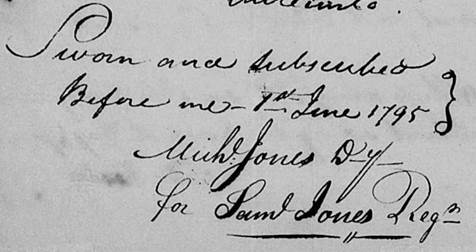 Sworn and subscribed
Before me - 1st June 1795 }
Michl. Jones Dy
for Saml Jones Regr